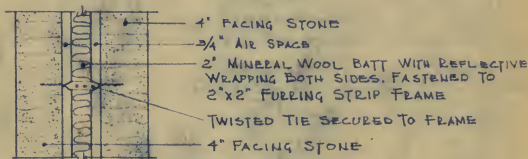 4" FACING STONE
3/4" AIR SPACE
2" MINERAL WOOL BATT WITH REFLECTIVE
WRAPPING BOTH SIDES. FASTENED TO
2"x2" FURRING STRIP FRAME
TWISTED TIE SECURED TO FRAME
4" FACING STONE